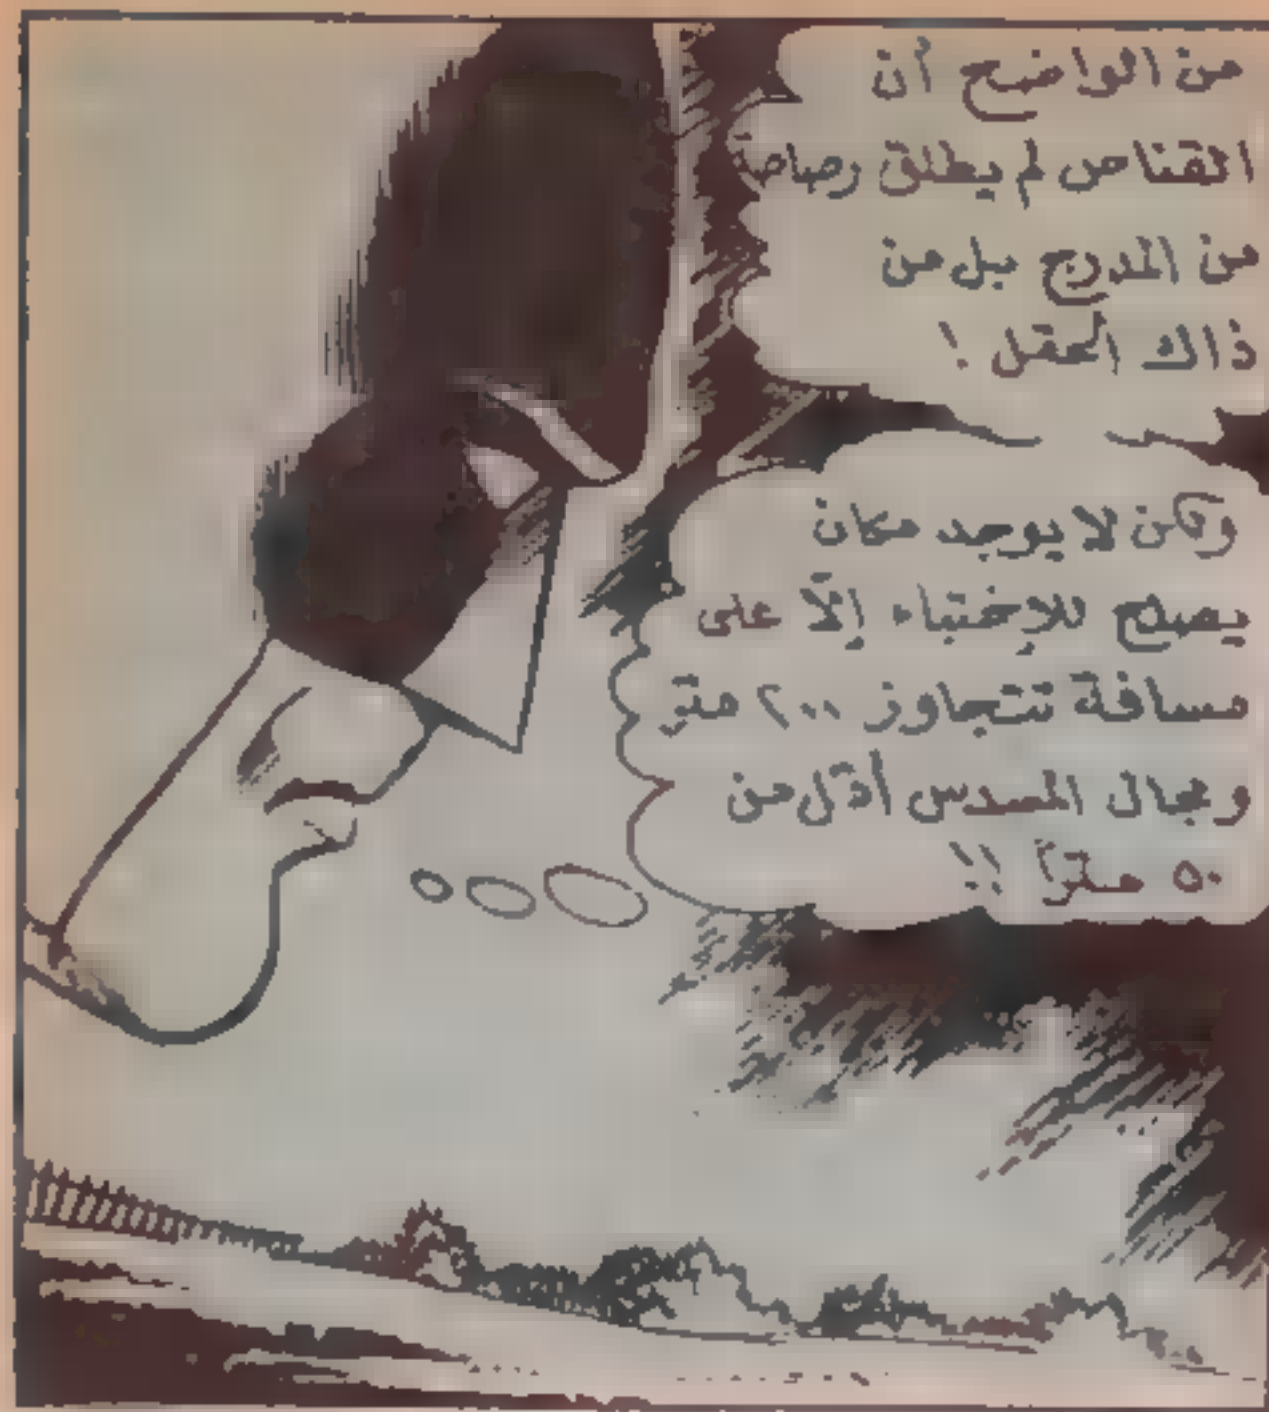 من الواضح أن
القناص لم يطلق رصاصه
من المدرج بل من
ذاك الحقل !
ولكن لا يوجد مكان
يصلح للإختباء إلّا على
مسافة تتجاوز ٢٠٠ متر
ومجال المسدس أقل من
٥٠ متراً !!